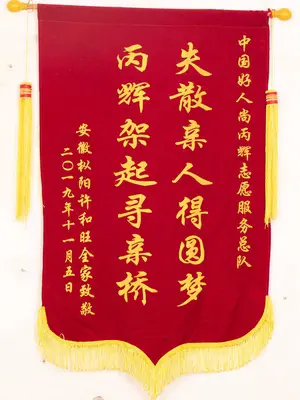 中国好人尚丙辉志愿服务总队
失散亲人得圆梦
丙辉架起寻亲桥
安徽枞阳许和旺全家致敬
二〇一九年十一月五日